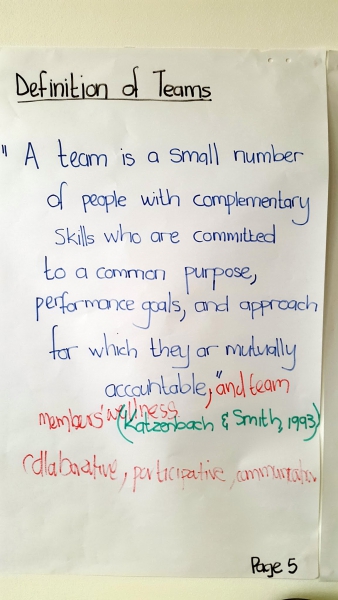 Definition of Teams
" A team is a small number
of people with complementary
skills who are committed
to a common purpose,
performance goals, and approach
for which they ar mutually
accountable," and team
members' wellness
(Katzenbach & Smith, 1993)
collaborative, participative, communication
Page 5